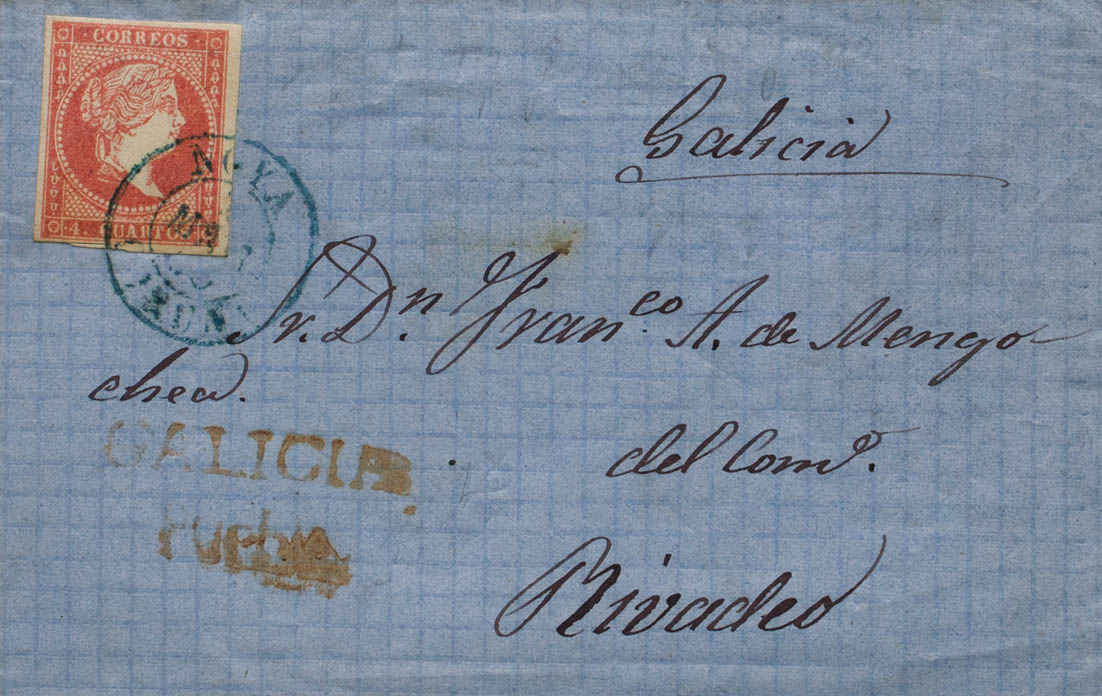 CORREOS
4 CUARTOS
Galicia
Sr. Dn. Franco. A. de Mengo-
chea.
GALICIA
del Como.
Rivadeo